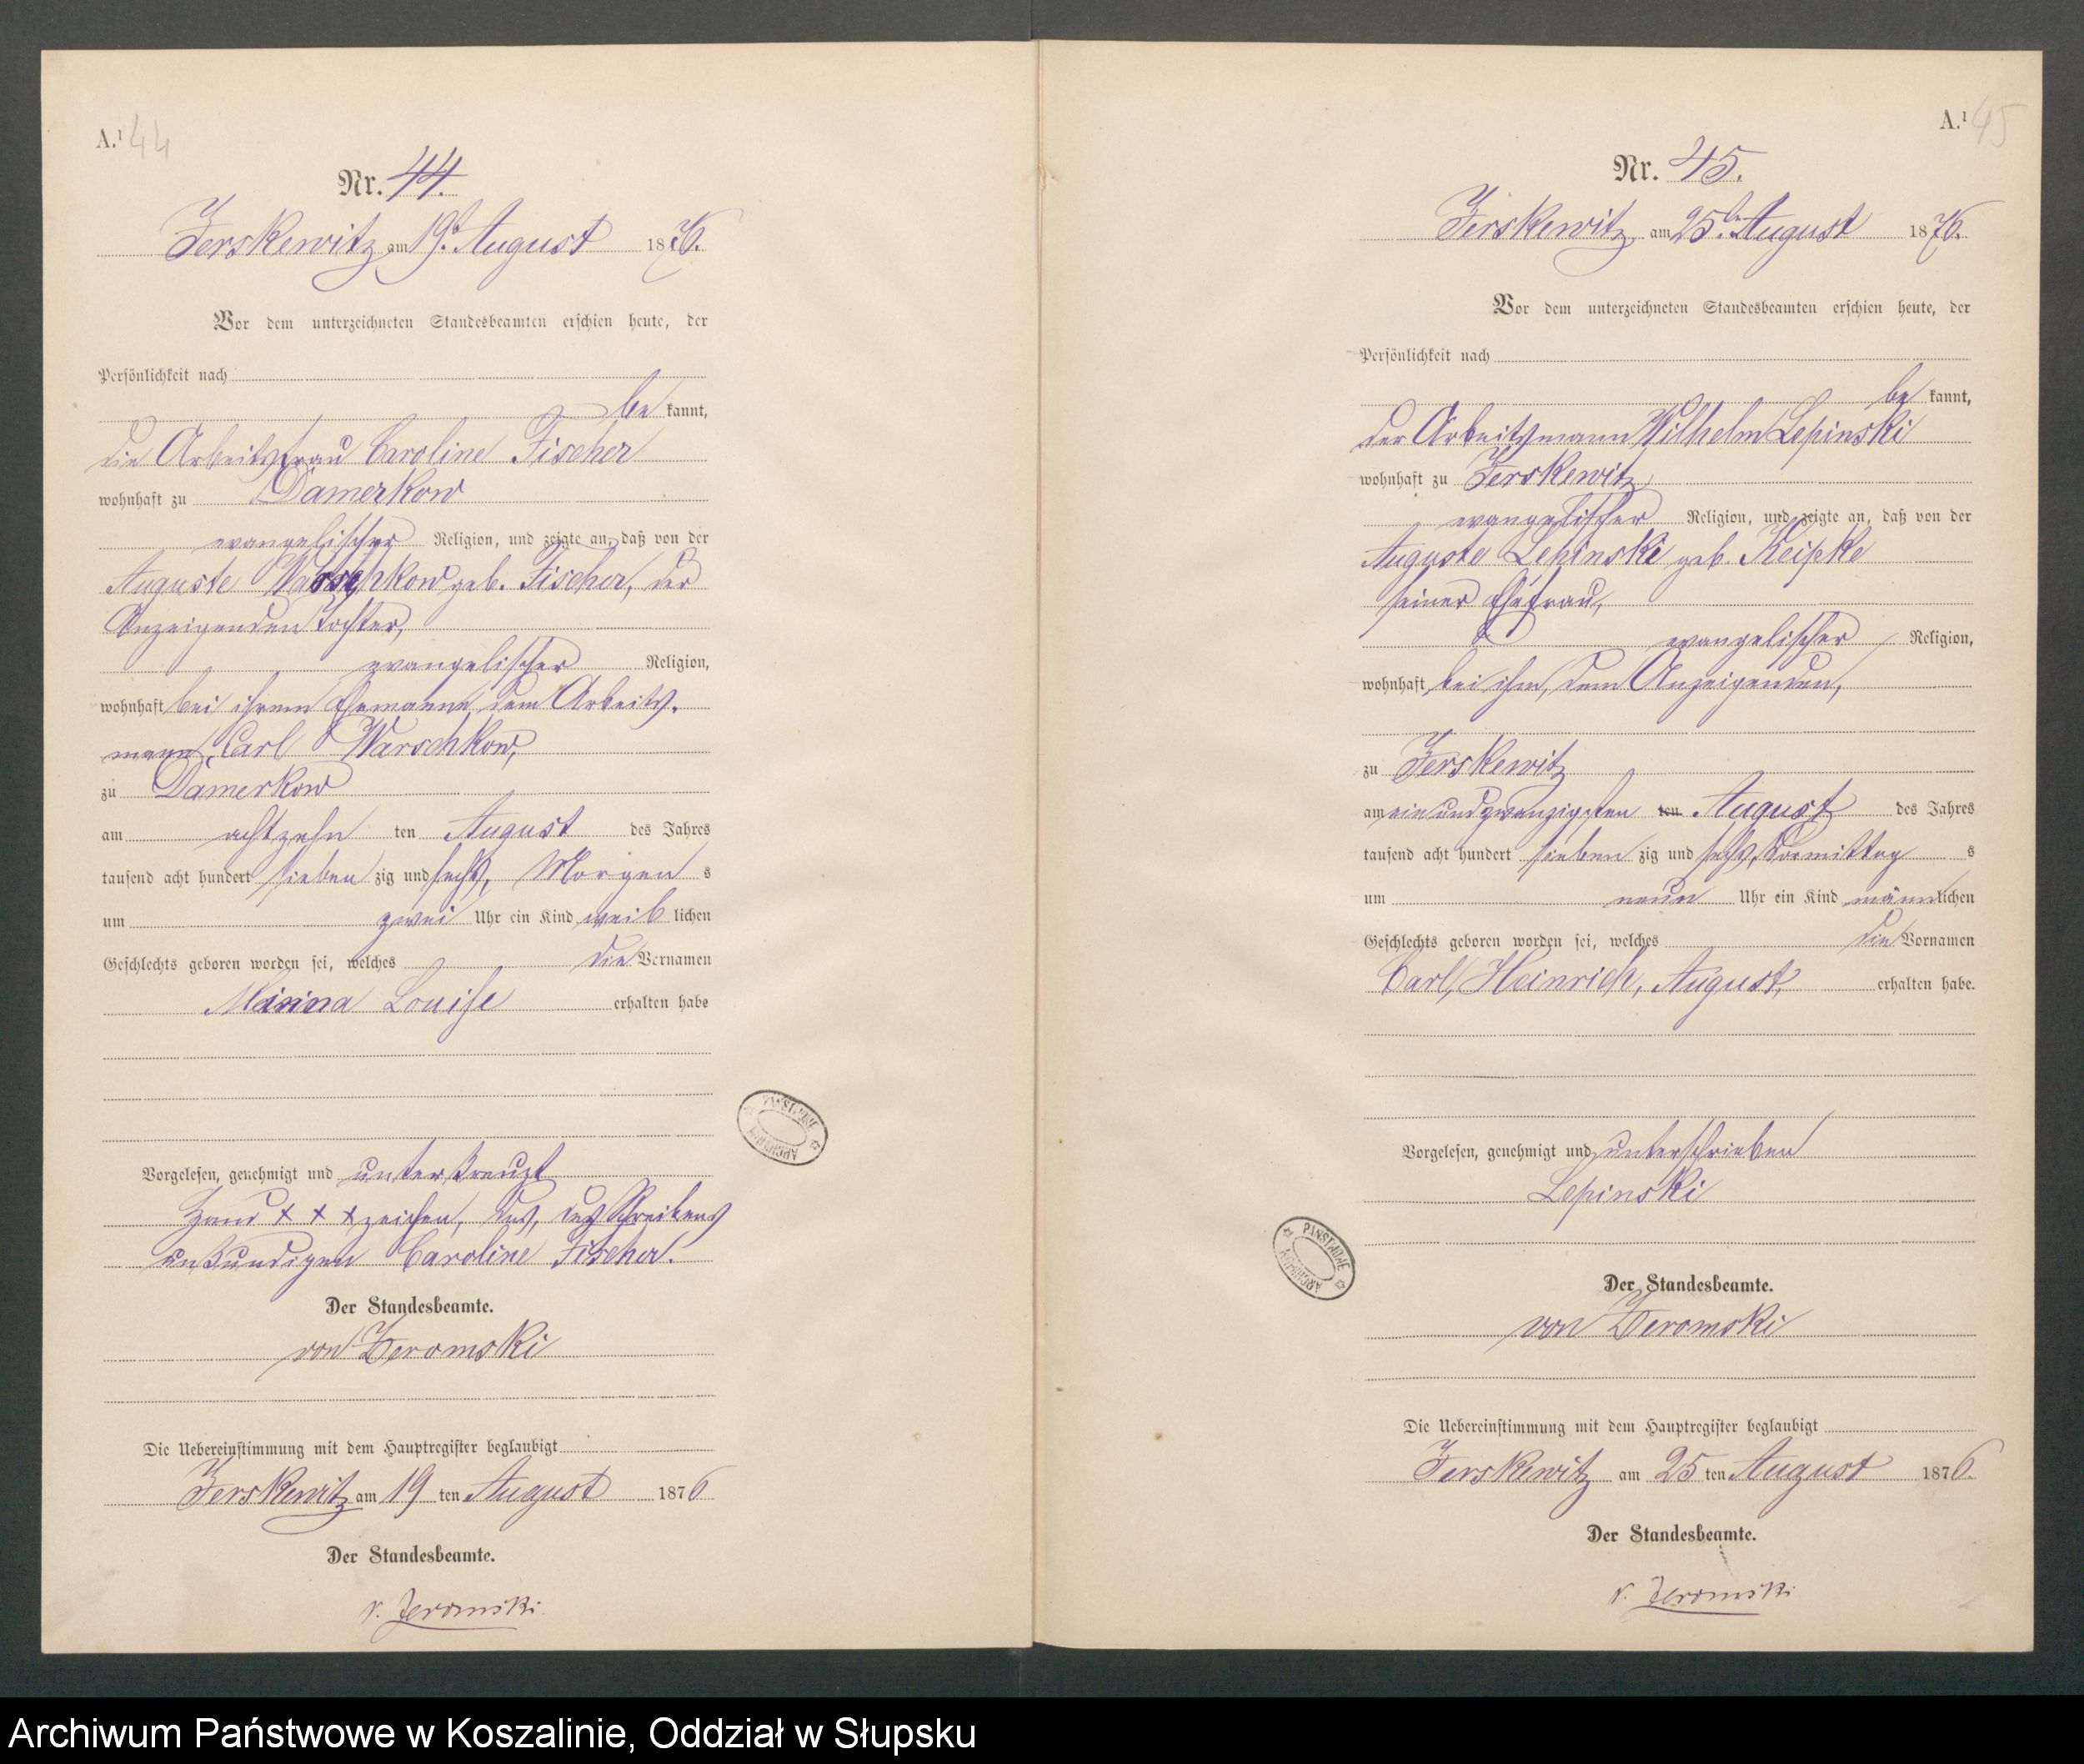 A.¹ 44
Nr. 44.
Jerskewitz am 19t. August 1876.
Vor dem unterzeichneten Standesbeamten erschien heute, der
Persönlichkeit nach
be kannt,
die Arbeitsfrau Caroline Fischer
wohnhaft zu Damerkow
evangelischer Religion, und zeigte an, daß von der
Auguste Warschkow geb. Fischer, der
Anzeigenden Tochter,
evangelischer Religion,
wohnhaft bei ihrem Ehemanne dem Arbeits-
mann Carl Warschkow,
zu Damerkow
am achtzehn ten August des Jahres
tausend acht hundert sieben zig und sechs, Morgen s
um zwei Uhr ein Kind weib lichen
Geschlechts geboren worden sei, welches die Vornamen
Minna Louise erhalten habe
Vorgelesen, genehmigt und unterkreuzt
Hand x x x zeichen, des, des Schreibens
unkundigen Caroline Fischer.
Der Standesbeamte.
von Zeromski
Die Uebereinstimmung mit dem Hauptregister beglaubigt
Jerskewitz am 19 ten August 1876
Der Standesbeamte.
v. Zeromski
PAŃSTWOWE ARCHIWUM
A.¹ 45
Nr. 45.
Jerskewitz am 25ten August 1876.
Vor dem unterzeichneten Standesbeamten erschien heute, der
Persönlichkeit nach
be kannt,
der Arbeitsmann Wilhelm Lepinski
wohnhaft zu Jerskewitz
evangelischer Religion, und zeigte an, daß von der
Auguste Lepinski geb.
seiner Ehefrau,
evangelischer Religion,
wohnhaft bei ihm, dem Anzeigenden,
zu Jerskewitz
am einundzwanzigsten ten August des Jahres
tausend acht hundert sieben zig und sechs, Vormittag s
um neun Uhr ein Kind männlichen
Geschlechts geboren worden sei, welches die Vornamen
Carl, Heinrich, August, erhalten habe.
Vorgelesen, genehmigt und unterschrieben
Lepinski
PAŃSTWOWE ARCHIWUM
Der Standesbeamte.
von Zeromski
Die Uebereinstimmung mit dem Hauptregister beglaubigt
Jerskewitz am 25 ten August 1876.
Der Standesbeamte.
v. Zeromski
Archiwum Państwowe w Koszalinie, Oddział w Słupsku